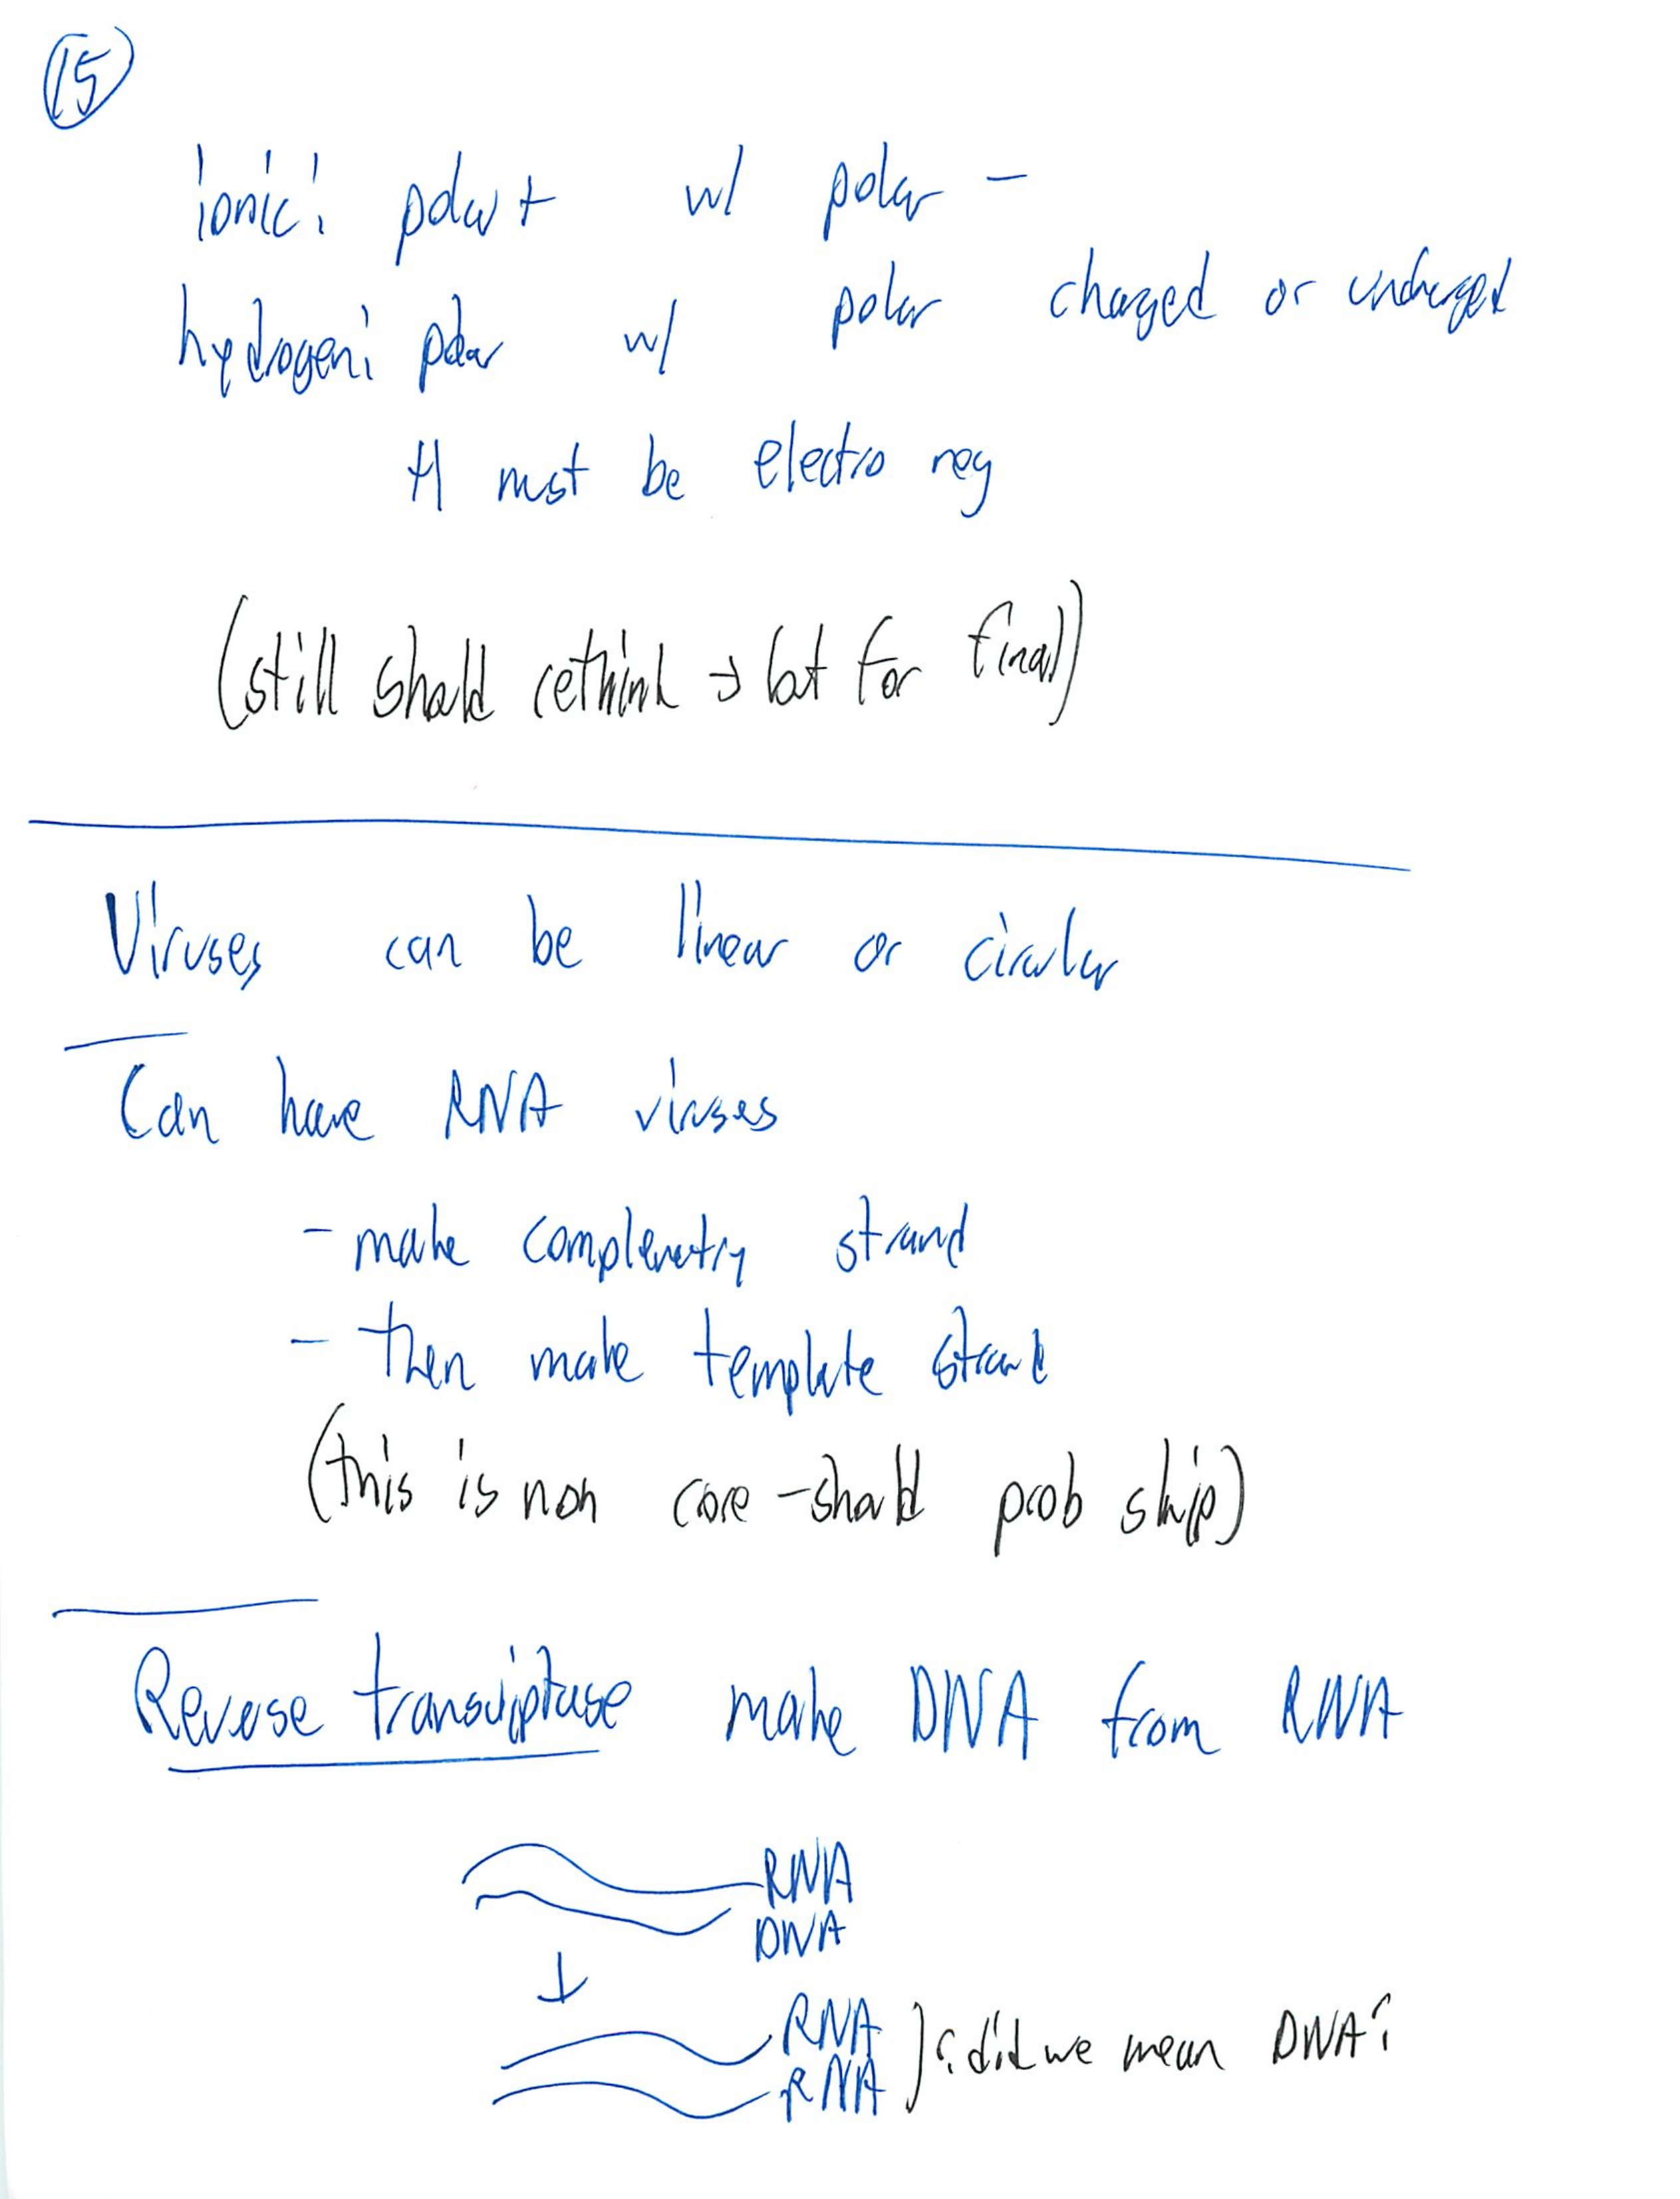 15
ionic: polar + w/ polar -
hydrogen: polar w/ polar charged or uncharged
H must be electro neg
(still should rethink → lot for final)
Viruses can be linear or circular
Can have RNA viruses
- make complemetry strand
- then make template strand
(this is non core - should prob skip)
Reverse transcriptase make DNA from RNA
RNA
DNA
↓
RNA
RNA
¿did we mean DNA?